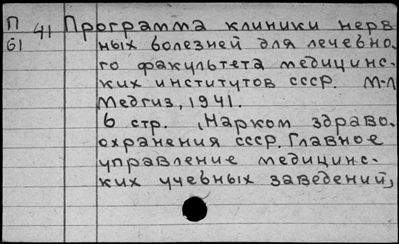 П 41 Программа клиники нерв
61 ных болезней для лечебно.
го факультета медицинс.
ких институтов ссср. М-Л
Медгиз, 1941.
6 стр. (Нарком здраво.
охранения ссср. Главное
управление медицинс.
ких учебных заведений,